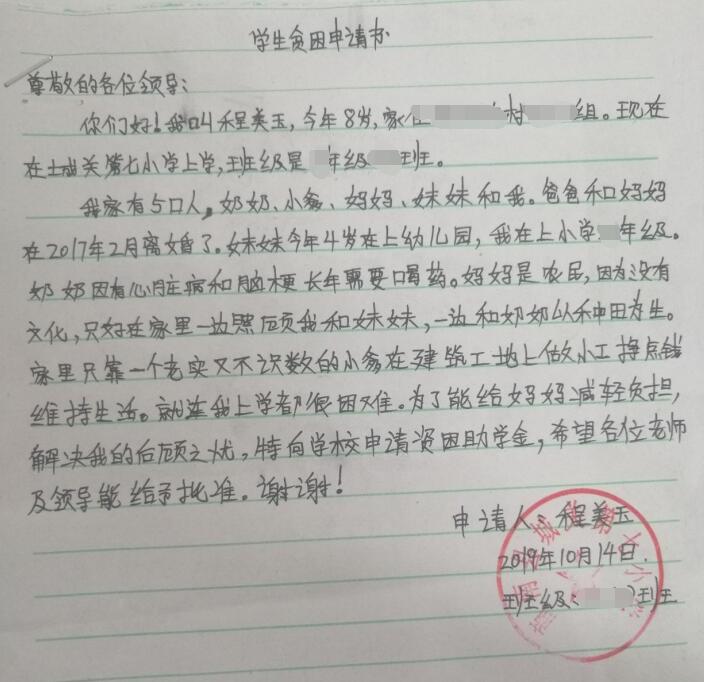 学生贫困申请书
尊敬的各位领导：
你们好！我叫程美玉，今年8岁，家住村组。现在
在城关第七小学上学，班级是年级班。
我家有5口人，奶奶、小爹、妈妈、妹妹和我。爸爸和妈妈
在2017年2月离婚了。妹妹今年4岁在上幼儿园，我在上小学年级。
奶奶因有心脏病和脑梗长年需要喝药。妈妈是农民，因为没有
文化，只好在家里一边照顾我和妹妹，一边和奶奶以种田为生。
家里只靠一个老实又不识数的小爹在建筑工地上做小工挣点钱
维持生活。就连我上学都很困难。为了能给妈妈减轻负担，
解决我的后顾之忧，特向学校申请贫困助学金，希望各位老师
及领导能给予批准。谢谢！
申请人：程美玉
2019年10月14日.
班级：班